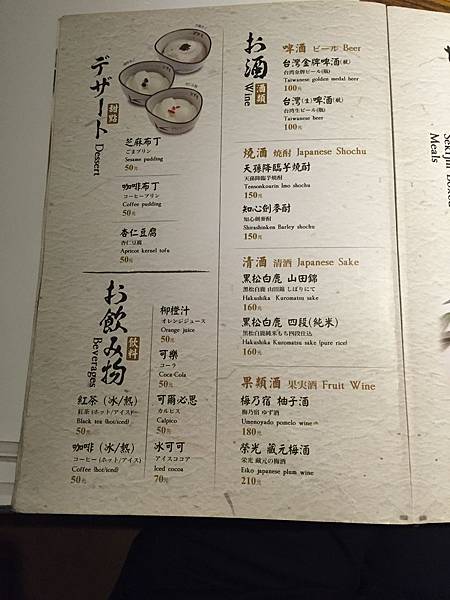 デザート
甜點
Dessert
芝麻布丁
ごまプリン
Sesame pudding
50元
咖啡布丁
コーヒープリン
Coffee pudding
50元
杏仁豆腐
杏仁豆腐
Apricot kernel tofu
50元
お飲み物
飲料
Beverages
紅茶 (冰/熱)
紅茶 (ホット/アイス)
Black tea (hot/iced)
50元
咖啡 (冰/熱)
コーヒー (ホット/アイス)
Coffee (hot/iced)
50元
柳橙汁
オレンジジュース
Orange juice
50元
可樂
コーラ
Coca-Cola
50元
可爾必思
カルピス
Calpico
50元
冰可可
アイスココア
Iced cocoa
70元
お酒
酒類
Wine
啤酒 ビール Beer
台灣金牌啤酒(瓶)
台湾金牌ビール(瓶)
Taiwanese golden medal beer
100元
台灣(生)啤酒(瓶)
台湾生ビール(瓶)
Taiwanese beer
100元
燒酒 焼酎 Japanese Shochu
天孫降臨芋燒酎
天孫降臨芋焼酎
Tensonkourin Imo shochu
150元
知心劍麥酎
知心剣麦焼酎
Shirashinken Barley shochu
150元
清酒 清酒 Japanese Sake
黑松白鹿 山田錦
黒松白鹿 山田錦 しぼりにて
Hakushika Kuromatsu sake
160元
黑松白鹿 四段(純米)
黒松白鹿純米もち四段仕込
Hakushika Kuromatsu sake (pure rice)
160元
果類酒 果実酒 Fruit Wine
梅乃宿 柚子酒
梅乃宿 ゆず酒
Umenoyado pomelo wine
180元
榮光 藏元梅酒
栄光 蔵元の梅酒
Eiko japanese plum wine
210元
Meals